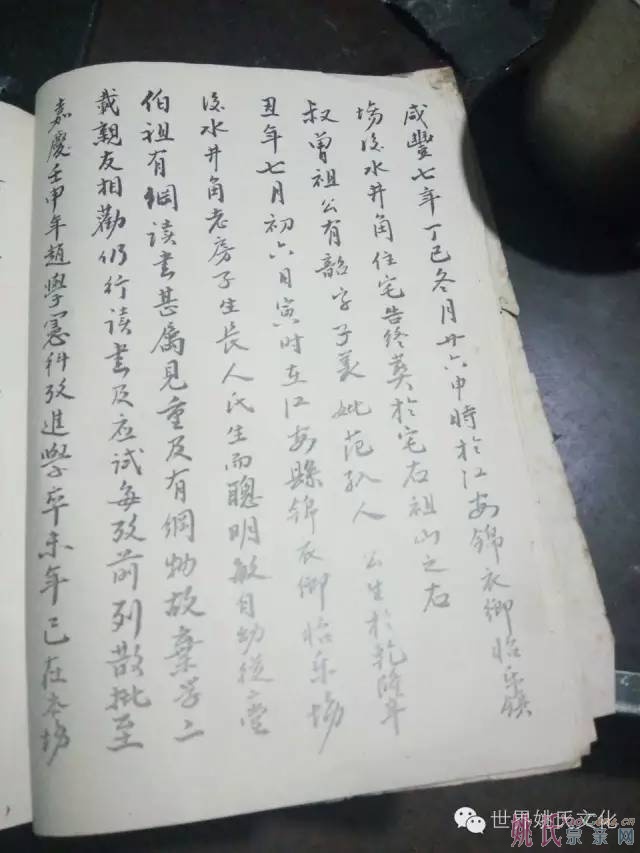 咸豐七年丁巳冬月廿六申時於江安錦衣鄉怡乐鎮
塲後水井角住宅告终葬於宅右祖山之右
叔曾祖公有韶字子美妣范孔人 公生於乾隆辛
丑年七月初六日寅时在江安縣錦衣鄉怡乐場
後水井角老房子生長人氏生而聰明敏自幼從堂
伯祖有綱读书甚属見重及有綱物故棄学二
載親友相勸仍行读书及应試每攷前列散批至
嘉慶壬申年趙學憲科攷進學辛未年已在本塲
世界姚氏文化
姚氏宗亲网